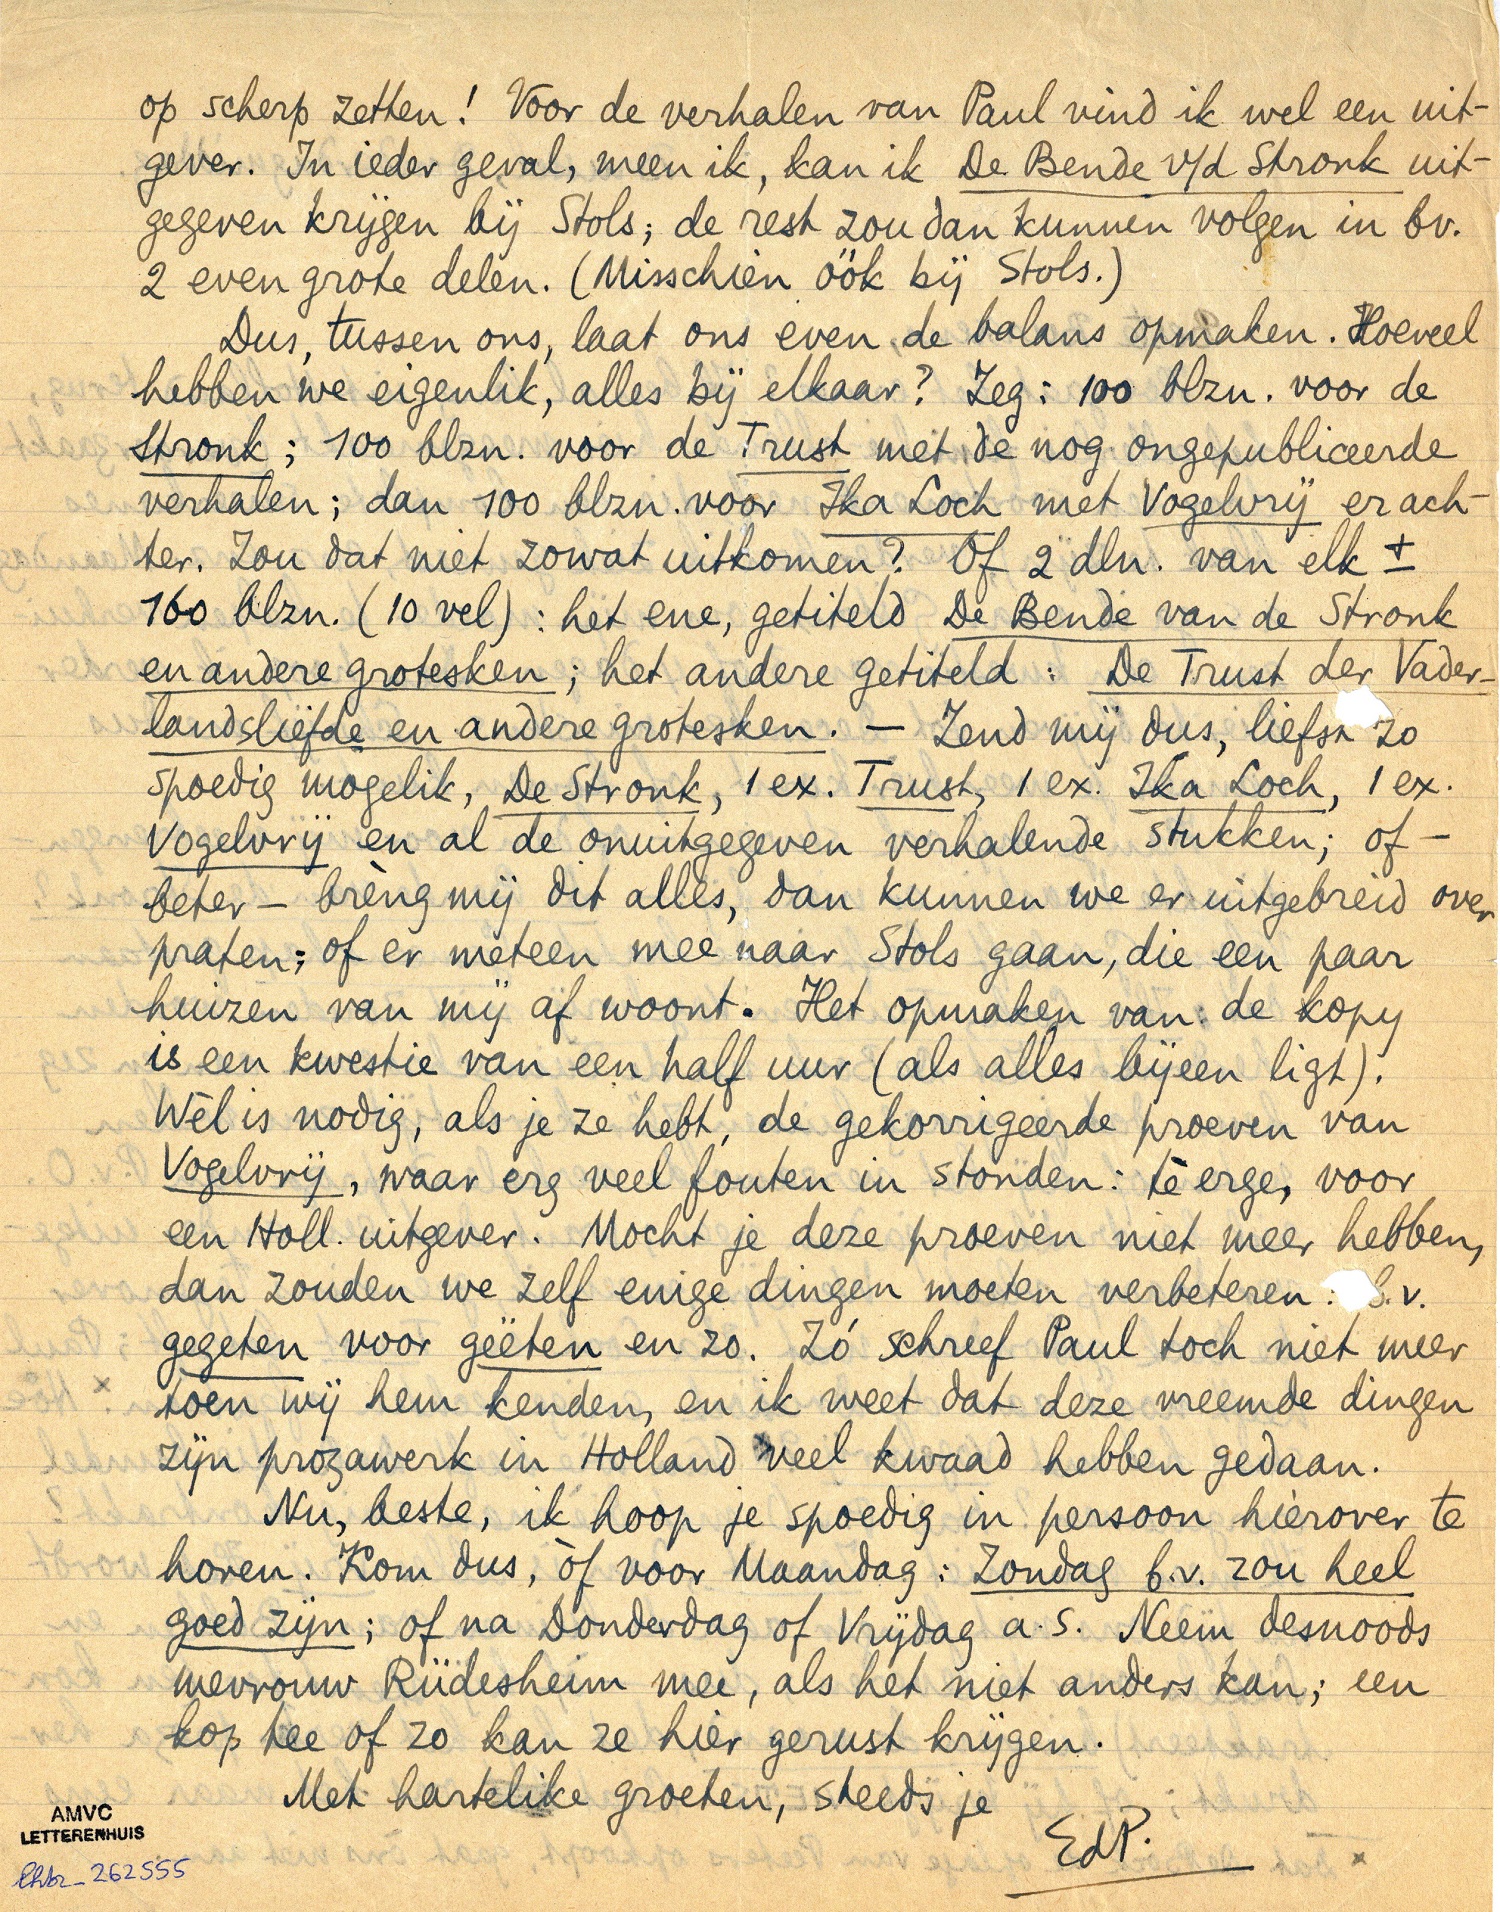 op scherp zetten! Voor de verhalen van Paul vind ik wel een uit-
gever. In ieder geval, meen ik, kan ik De Bende v/d Stronk uit-
gegeven krijgen bij Stols; de rest zou dan kunnen volgen in bv.
2 even grote delen. (Misschien óók bij Stols.)
Dus, tussen ons, laat ons even de balans opmaken. Hoeveel
hebben we eigenlik, alles bij elkaar? Zeg: 100 blzn. voor de
Stronk; 100 blzn. voor de Trust met de nog ongepubliceerde
verhalen; dan 100 blzn. voor Ika Loch met Vogelvrij erach-
ter. Zou dat niet zowat uitkomen? Of 2 dln. van elk ±
160 blzn. (10 vel): het ene, getiteld De Bende van de Stronk
en andere grotesken; het andere getiteld: De Trust der Vader-
landsliefde en andere grotesken. — Zend mij dus, liefst zo
spoedig mogelik, De Stronk, 1 ex. Trust, 1 ex. Ika Loch, 1 ex.
Vogelvrij en al de onuitgegeven verhalende stukken; of —
beter — brèng mij dit alles, dan kunnen we er uitgebreid over
praten; of er meteen mee naar Stols gaan, die een paar
huizen van mij af woont. Het opmaken van de kopy
is een kwestie van een half uur (als alles bijeen ligt).
Wèl is nodig, als je ze hebt, de gekorrigeerde proeven van
Vogelvrij, waar erg veel fouten in stonden: tè erge, voor
een Holl. uitgever. Mocht je deze proeven niet meer hebben,
dan zouden we zelf enige dingen moeten verbeteren: b.v.
gegeten voor geëten en zo. Zó schreef Paul toch niet meer
toen wij hem kenden, en ik weet dat deze vreemde dingen
zijn prozawerk in Holland veel kwaad hebben gedaan.
Nu, beste, ik hoop je spoedig in persoon hierover te
horen. Kom dus, òf voor Maandag: Zondag b.v. zou heel
goed zijn; of na Donderdag of Vrijdag a.s. Neem desnoods
mevrouw Rüdesheim mee, als het niet anders kan; een
kop tee of zo kan ze hier gerust krijgen.
Met hartelike groeten, steeds je
EdP.
AMVC
LETTERENHUIS
lhbr_262555